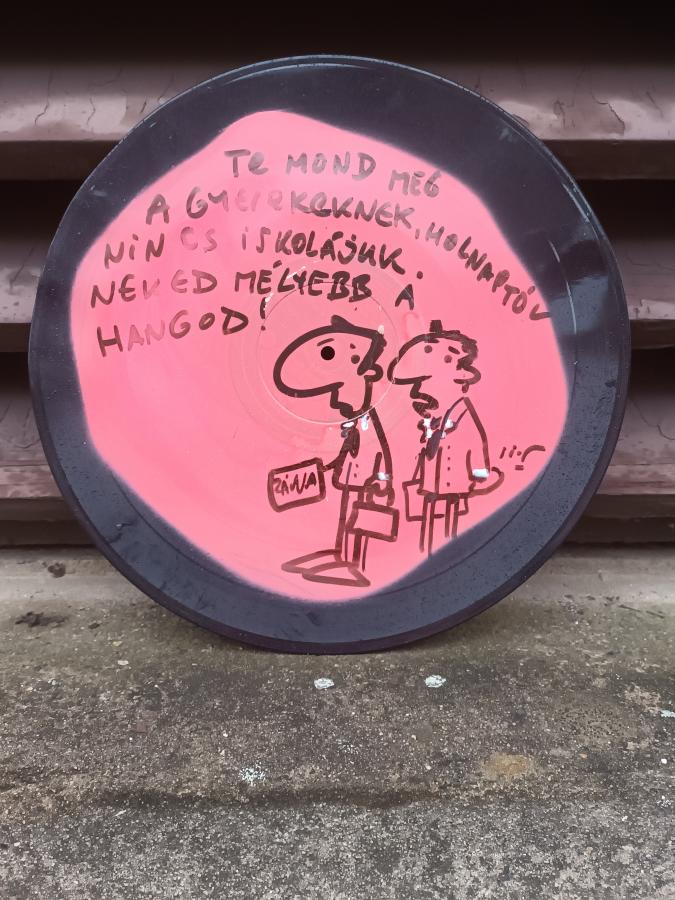 Te MOND MEG
A GYEREKEKNEK, HOLNAPTÓL
NINCS ISKOLÁJUK.
NEKED MÉLYEBB A
HANGOD!
ZÁRVA